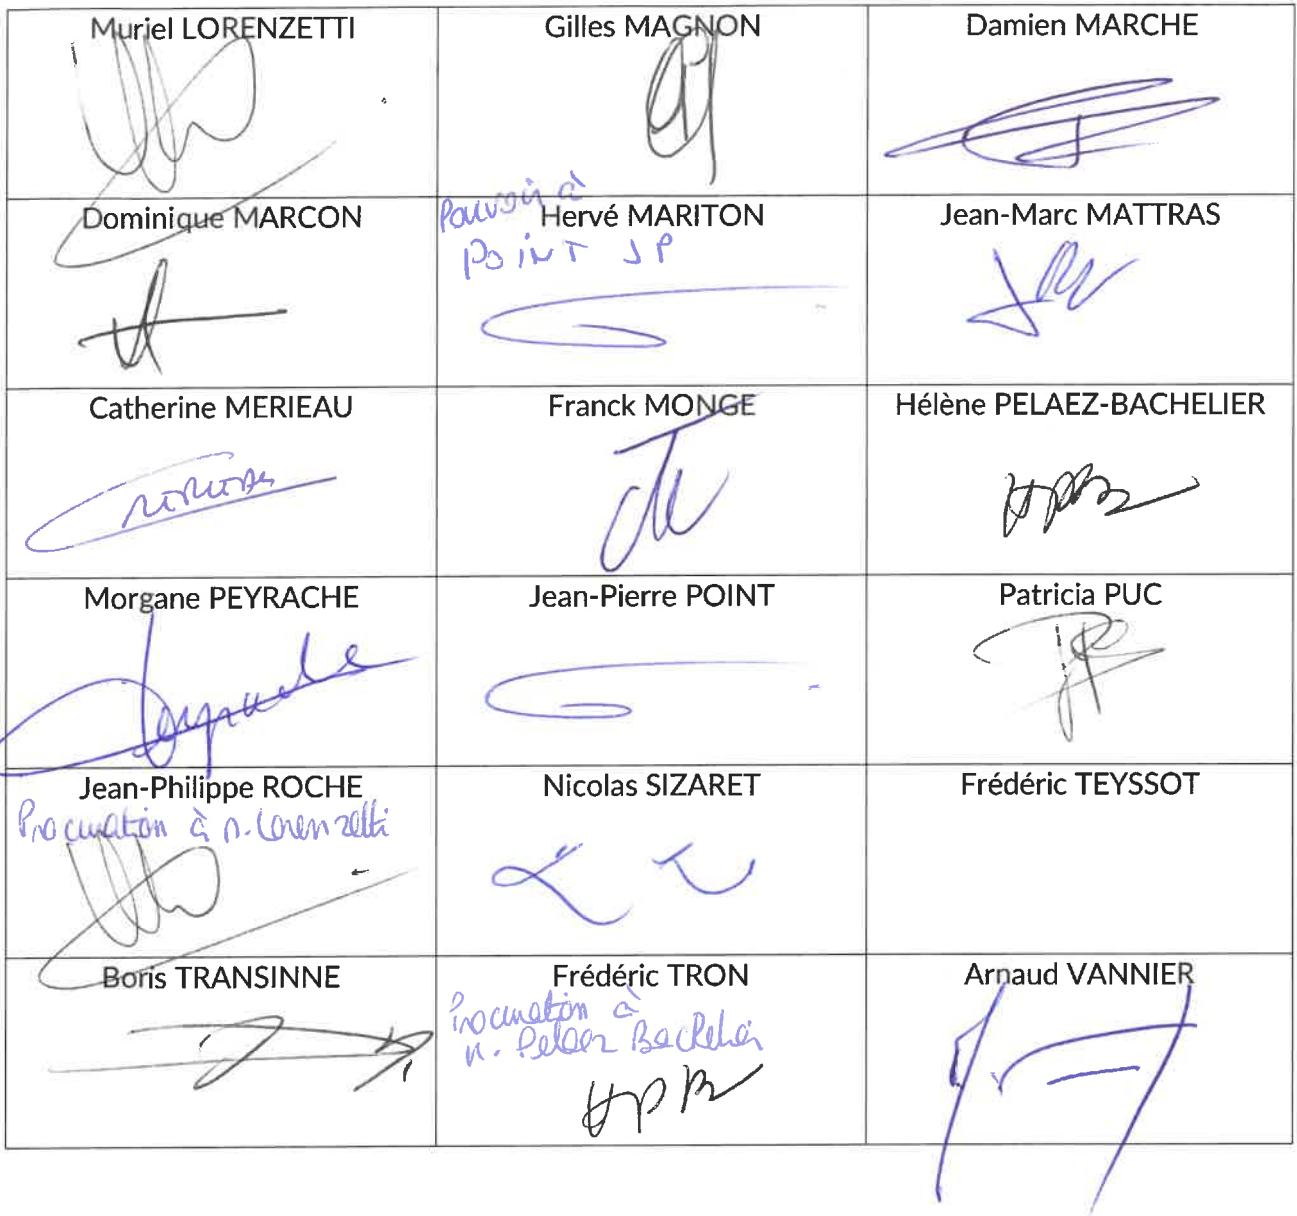 Muriel LORENZETTI
Gilles MAGNON
Damien MARCHE
Dominique MARCON
Pouvoir à
Hervé MARITON
POINT JP
Jean-Marc MATTRAS
Catherine MERIEAU
Franck MONGE
Hélène PELAEZ-BACHELIER
Morgane PEYRACHE
Jean-Pierre POINT
Patricia PUC
Jean-Philippe ROCHE
Procuration à M. Lorenzetti
Nicolas SIZARET
Frédéric TEYSSOT
Boris TRANSINNE
Frédéric TRON
Procuration à
M. Pelaez Bachelier
HPB
Arnaud VANNIER